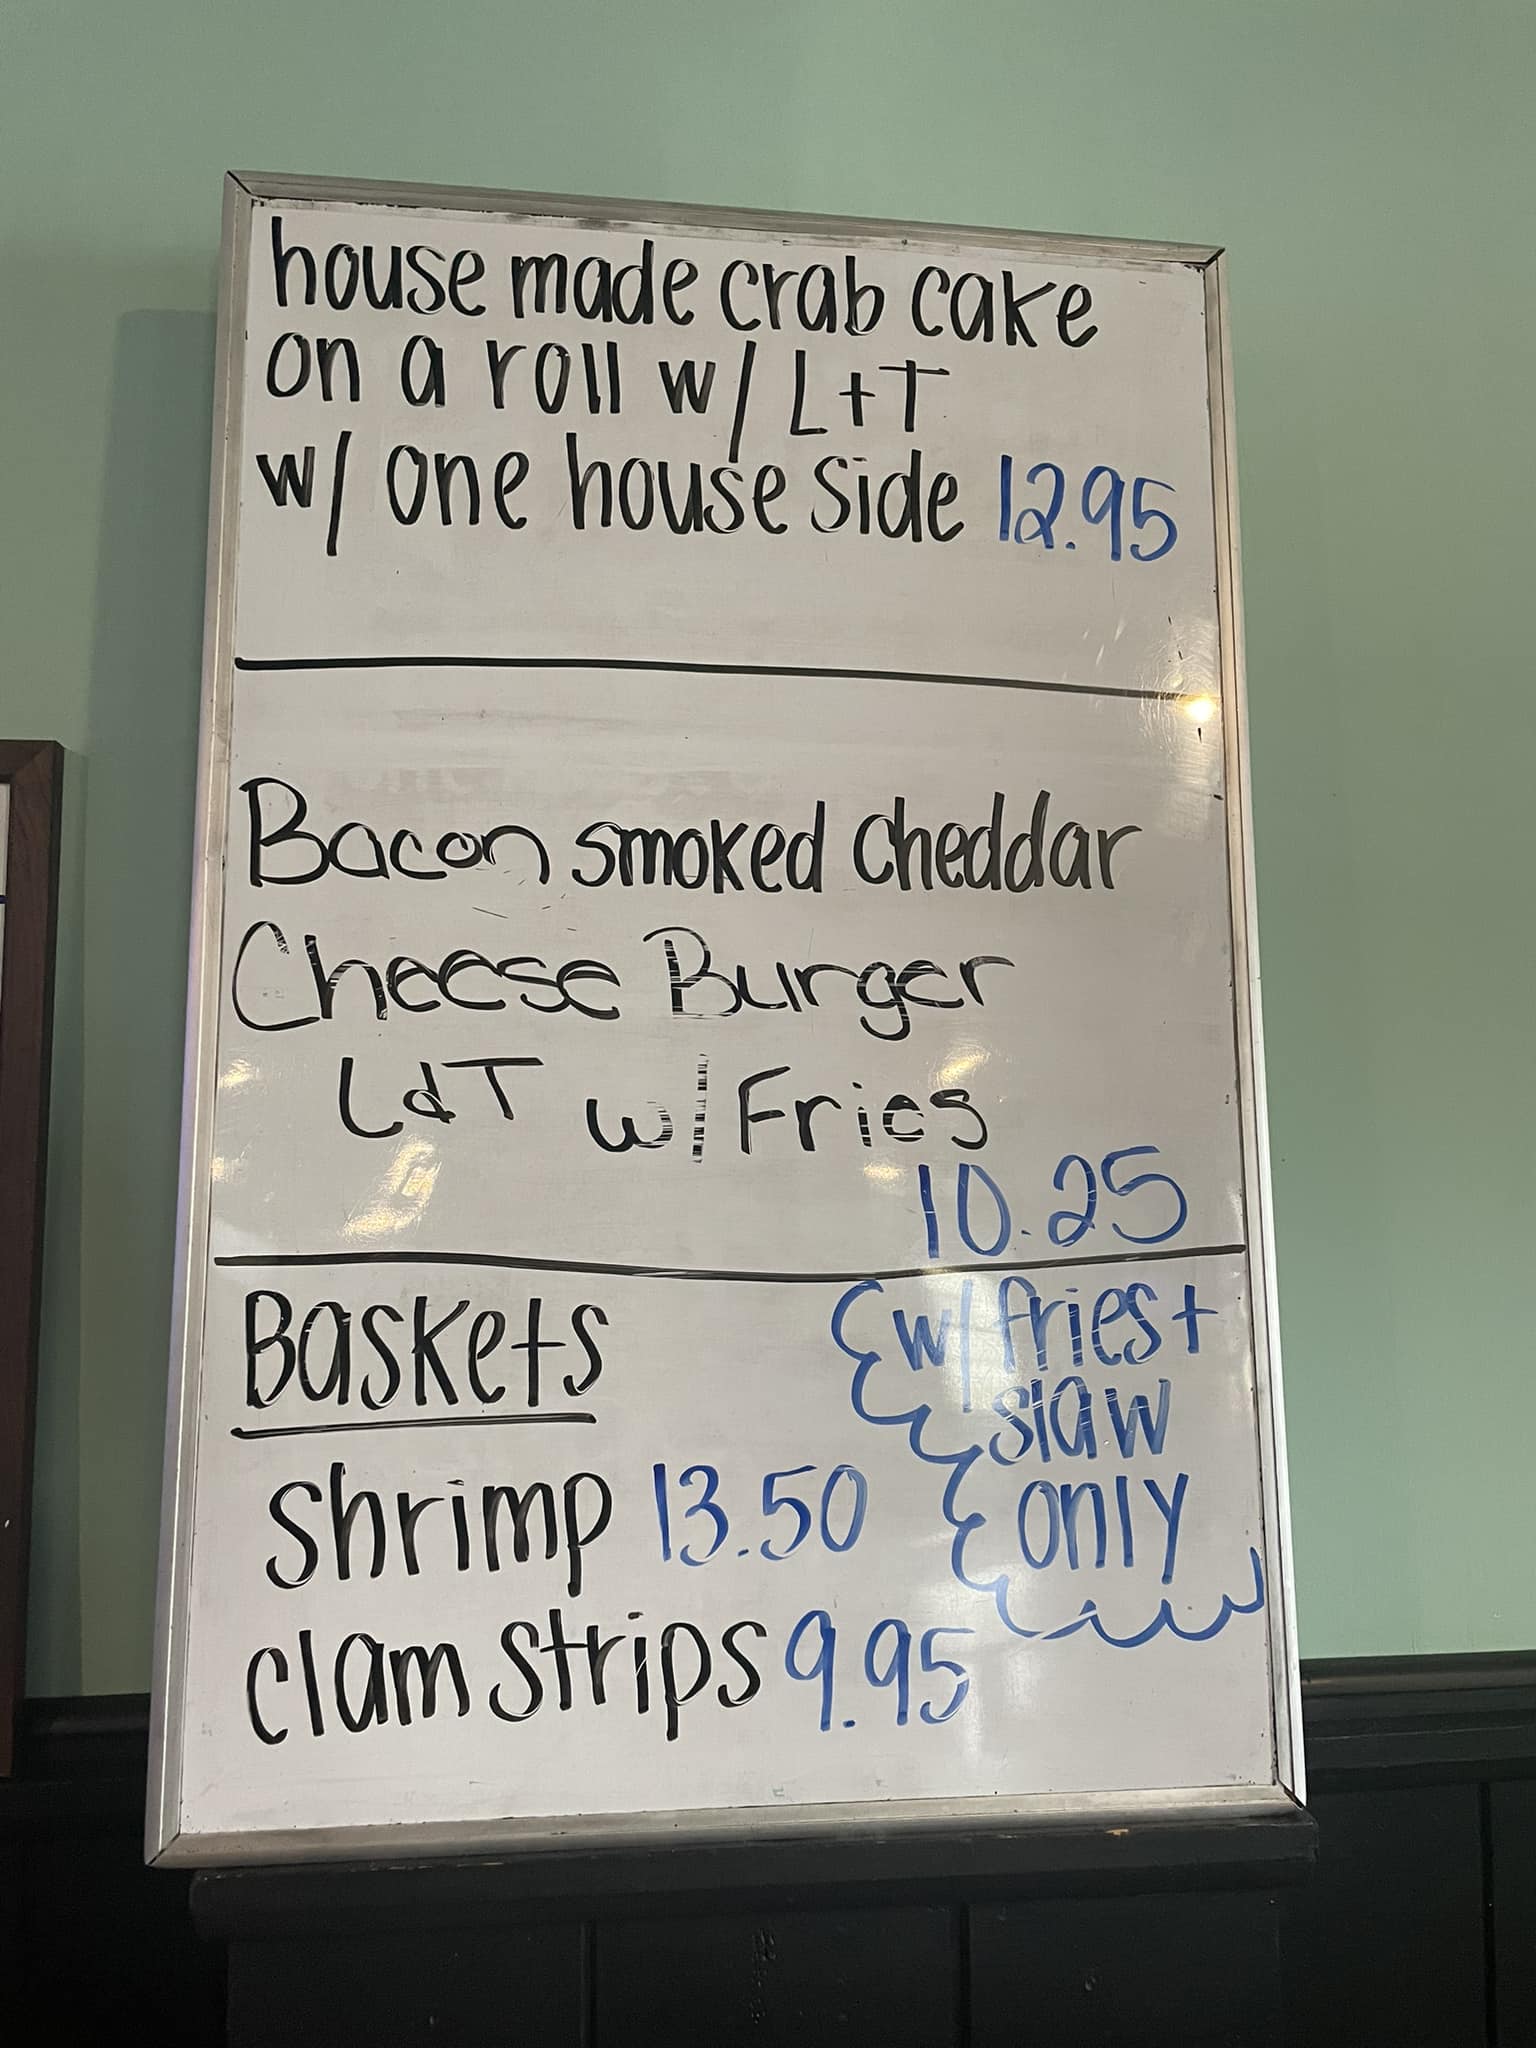 house made crab cake
on a roll w/ L+T
w/ one house side 12.95
Bacon smoked cheddar
Cheese Burger
L&T w/ Fries
10.25
Baskets
w/ fries +
slaw
only
shrimp 13.50
clam strips 9.95